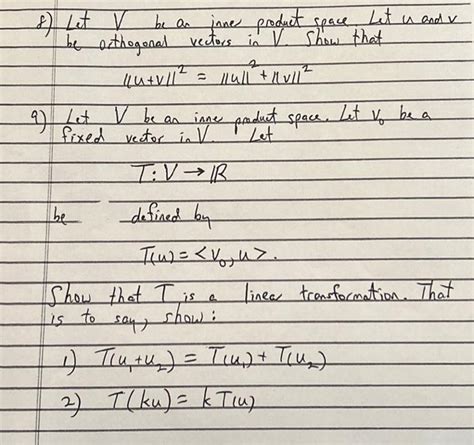 8) Let V be an inne product space. Let u and v
be orthogonal vectors in V. Show that
||u+v||² = ||u||² + ||v||²
9) Let V be an inne product space. Let v₀ be a
fixed vector in V. Let
T: V → ℝ
be defined by
T(u) = <v₀, u>.
Show that T is a linear transformation. That
is to say, show:
1) T(u₁+u₂) = T(u₁) + T(u₂)
2) T(ku) = k T(u)